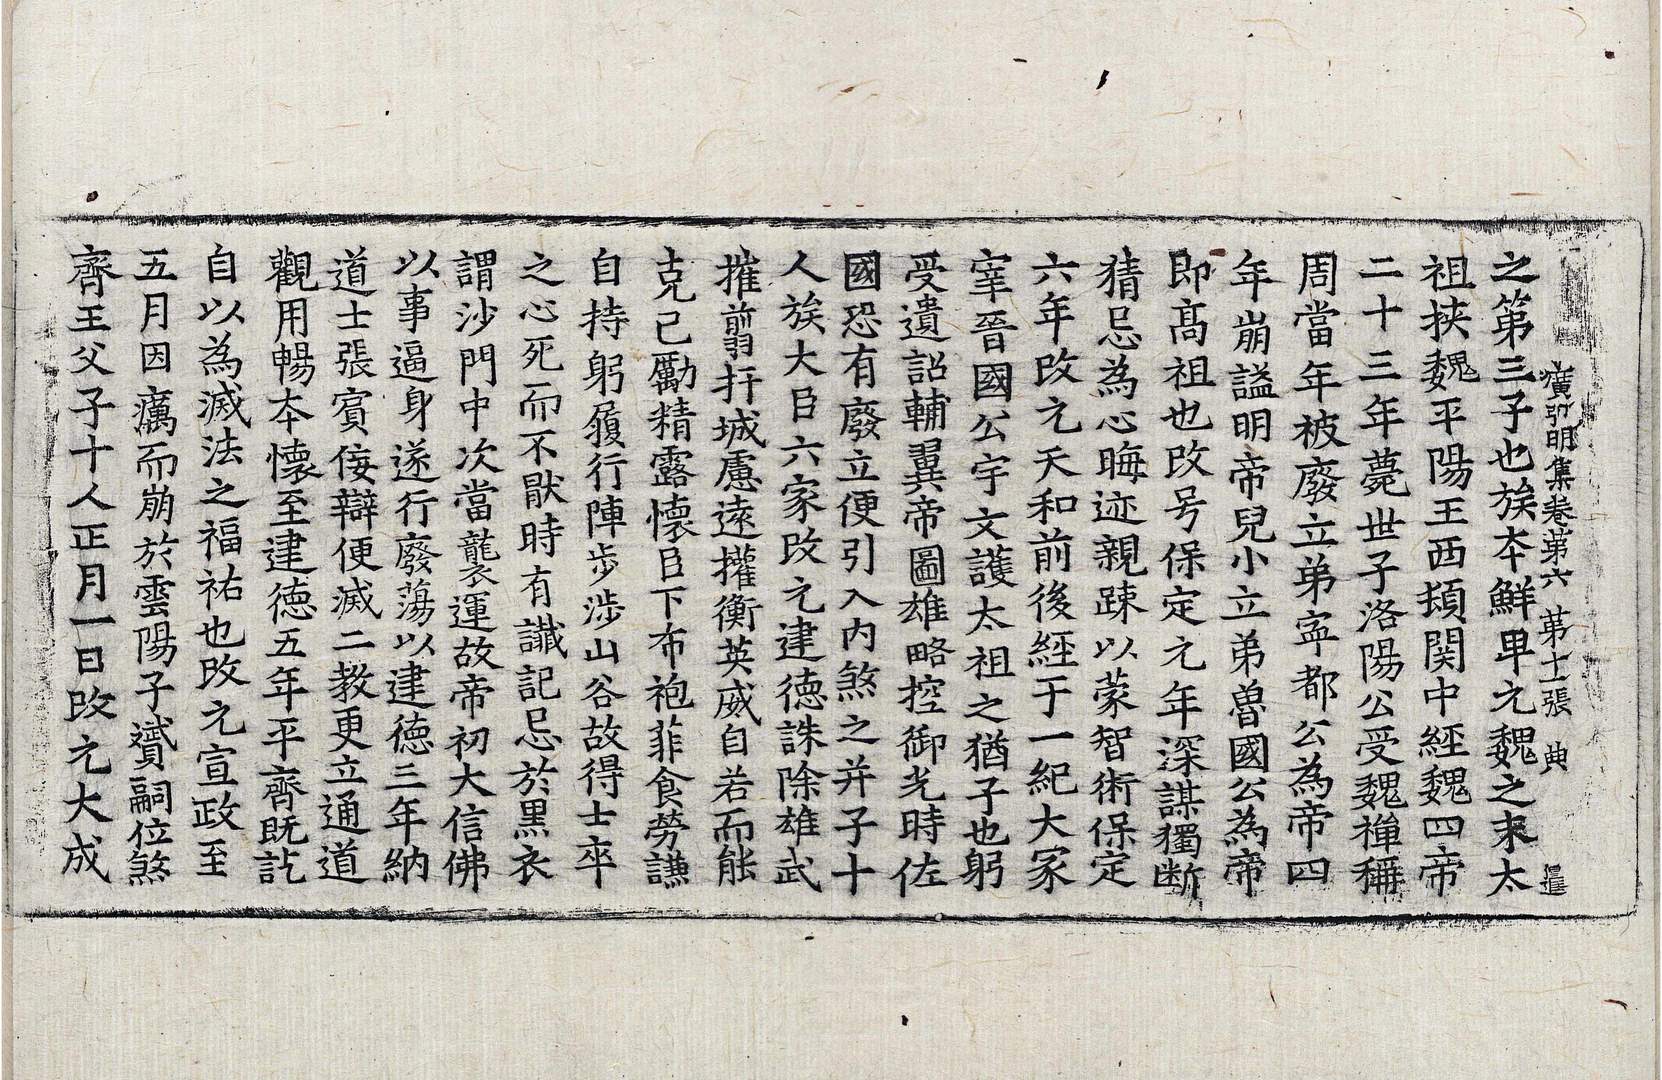 廣弘明集卷第六 第十二張 典
之第三子也族本鮮卑元魏之末太
祖挾魏平陽王西據関中經魏四帝
二十三年薨世子洛陽公受魏禪稱
周當年被廢立弟寧都公為帝四
年崩謚明帝兒小立弟魯國公為帝
即髙祖也改号保定元年深謀獨断
猜忌為心晦迹親踈以蒙智術保定
六年改元天和前後經于一紀大冢
宰晉國公宇文護太祖之猶子也躬
受遺詔輔翼帝圖雄略控御光時佐
國恐有廢立便引入內煞之并子十
人族大臣六家改元建德誅除雄武
摧翦扞城慮遠權衡英威自若而能
克己勵精露懷臣下布袍菲食勞謙
自持躬履行陣步涉山谷故得士卒
之心死而不猒時有讖記忌於黒衣
謂沙門中次當襲運故帝初大信佛
以事逼身遂行廢蕩以建德三年納
道士張賓佞辯便滅二教更立通道
觀用暢本懷至建德五年平齊既訖
自以為滅法之福祐也改元宣政至
五月因癘而崩於雲陽子贇嗣位煞
齊王父子十人正月一日改元大成